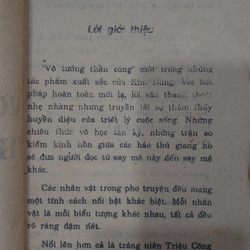 Lời giới thiệu
"Vô tướng thần công" một trong những
tác phẩm xuất sắc của Kim Dung. Với bút
pháp hoàn toàn mới lạ, lời văn thanh thoát
nhẹ nhàng nhưng truyền tải sự thâm thúy
huyền diệu của triết lý cuộc sống. Những
chiêu thức võ học tân kỳ, những trận so
kiếm kinh hồn giữa các hảo thủ giang hồ
sẽ đưa người đọc từ say mê này đến say mê
khác.
Các nhân vật trong pho truyện đều mang
một tính cách nổi bật khác biệt. Mỗi nhân
vật là mỗi biểu tượng khác nhau, tất cả đều
rõ ràng đậm nét.
Nổi lên hơn cả là tráng niên Triệu Công